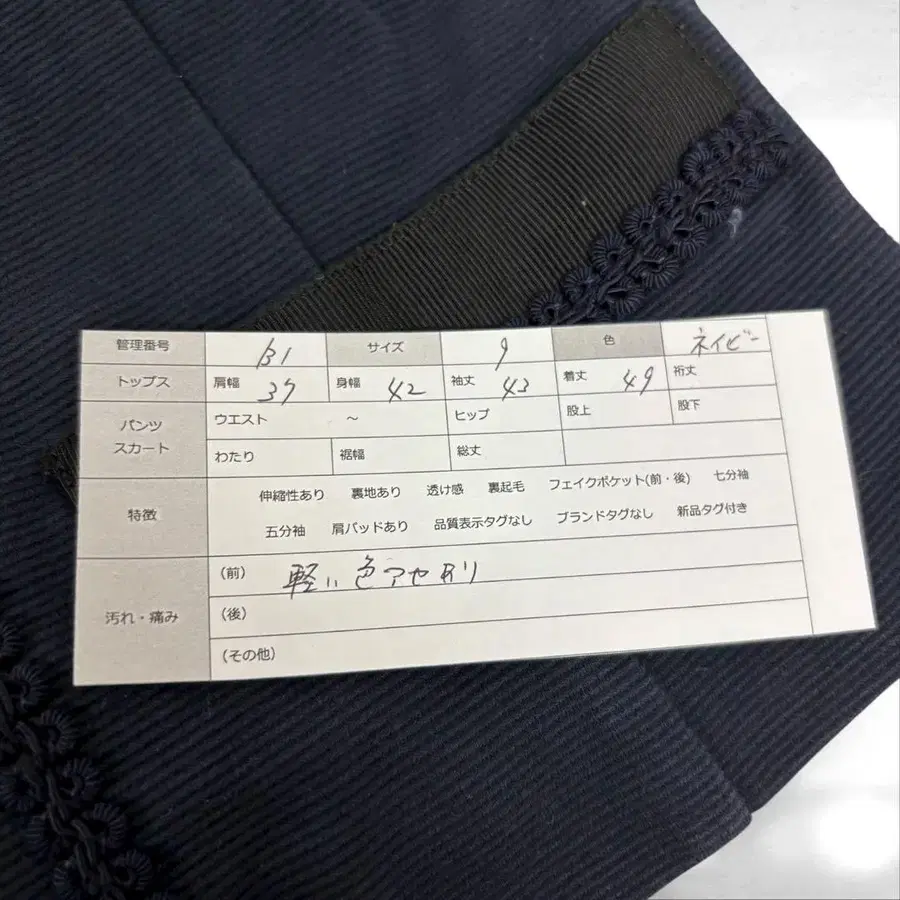 管理番号 131 サイズ 9 色 ネイビー
トップス 肩幅 37 身幅 42 袖丈 43 着丈 49 裄丈
パンツ スカート ウエスト ～ ヒップ 股上 股下
わたり 裾幅 総丈
特徴 伸縮性あり 裏地あり 透け感 裏起毛 フェイクポケット(前・後) 七分袖
五分袖 肩パッドあり 品質表示タグなし ブランドタグなし 新品タグ付き
汚れ・痛み (前) 軽い色アセあり
(後)
(その他)